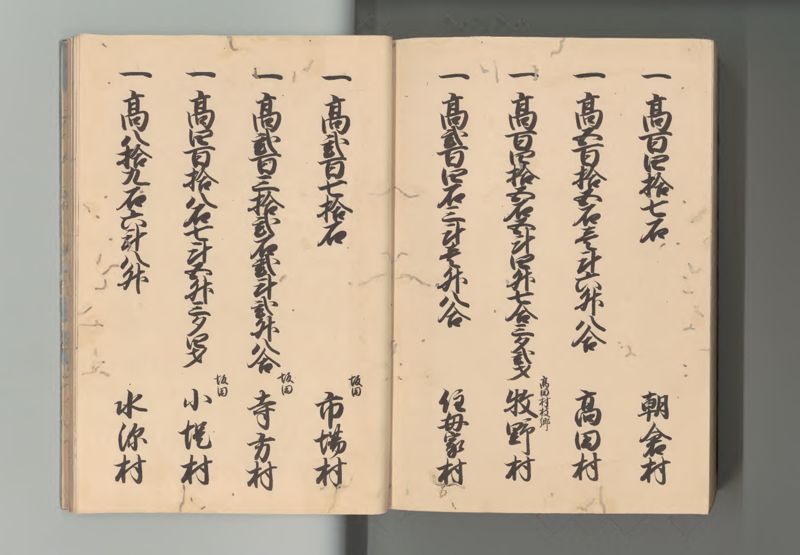 一 高百四拾七石 朝倉村
一 高五百拾五石壱斗六升八合 高田村
一 高百四拾五石五斗四升七合三夕弐才 高田村枝郷 牧野村
一 高弐百四石三斗壱升八合 住母家村
一 高弐百七拾石 坂田 市場村
一 高弐百三拾弐石弐斗弐升八合 坂田 寺方村
一 高四百拾八石七斗五升三夕四才 坂田 小堤村
一 高八拾九石六斗八升 水沢村